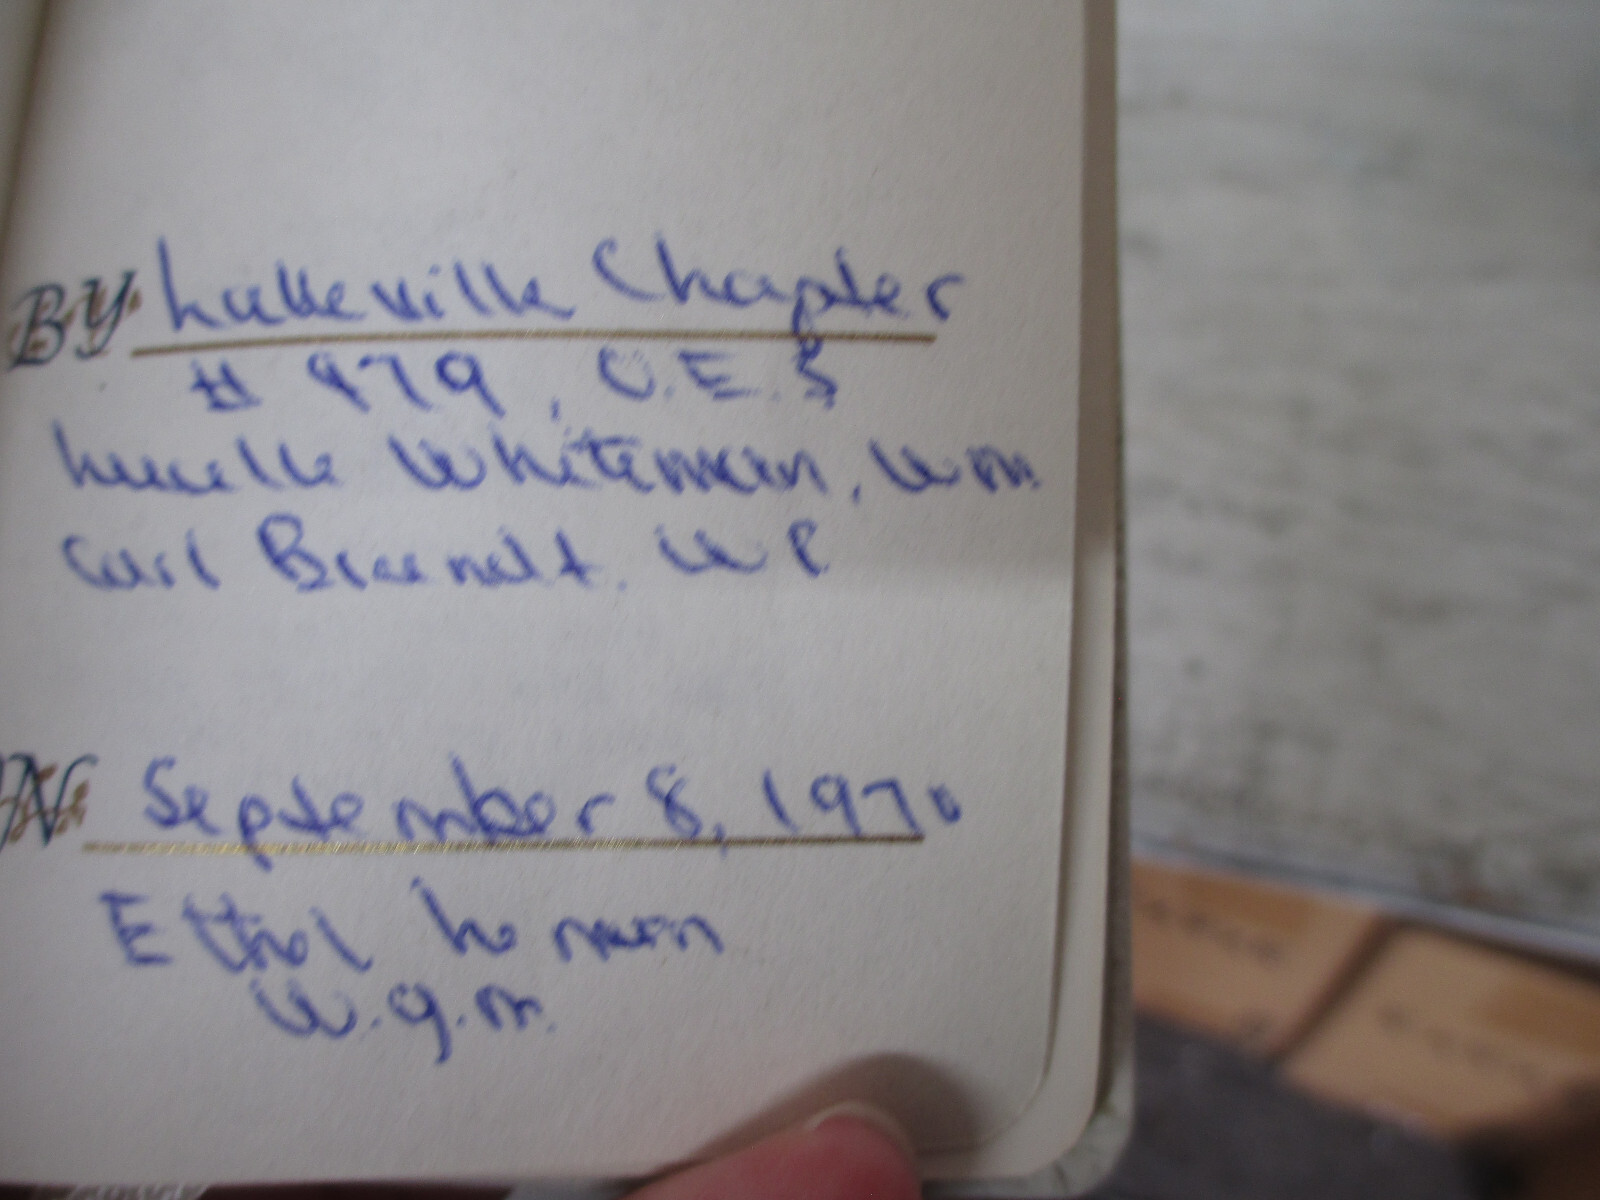 BY Lakeville Chapter
# 979, O.E.S
Lucille Whiteman, W M.
Carl W P.
September 8, 1970
Ethel
W.G.M.